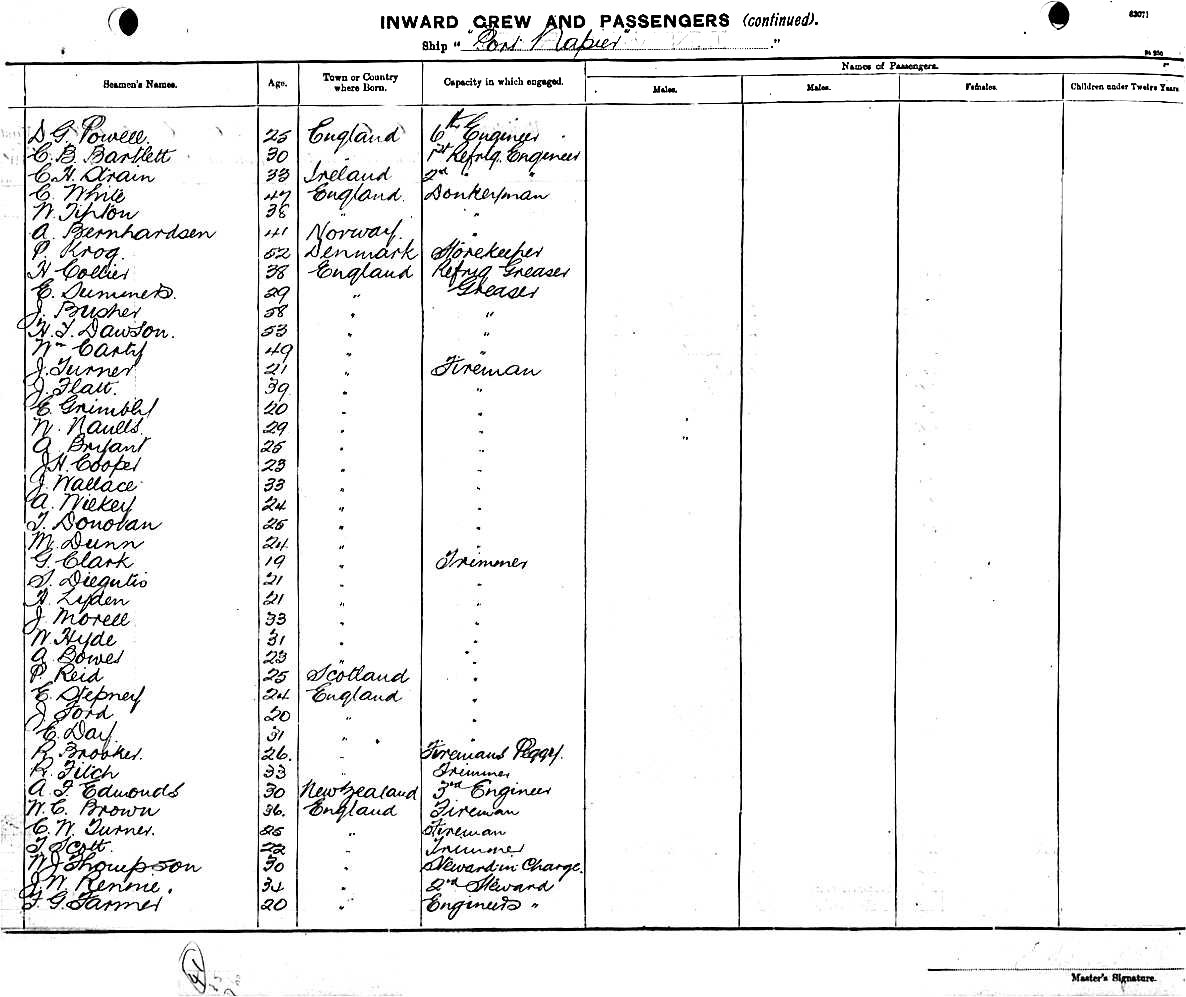 INWARD CREW AND PASSENGERS (continued).
63071
Ship "Port Napier"
Names of Passengers.
Seamen's Names. Age. Town or Country where Born. Capacity in which engaged. Males. Males. Females. Children under Twelve Years
D G. Powell. 25 England 6th Engineer
C. B. Bartlett 30 " 1st Refrig. Engineer
C. H. Drain 33 Ireland 2nd " "
C. White 47 England. Donkeyman
W. Tipton 38 " "
A. Bernhardsen 41 Norway. "
P. Krog. 52 Denmark Storekeeper
H Collier 38 England Refrig Greaser
E. Summers. 29 " Greaser
J. Busher 58 " "
H. J. Dawson. 53 " "
Wm Carty 49 " "
J. Turner 21 " Fireman
J. Flatt. 39 " "
E. Grimbly 20 " "
W. Naulls. 29 " "
A. Bryant 25 " "
J.H. Cooper 23 " "
J. Wallace 33 " "
A. Wilkey 24 " "
T. Donovan 25 " "
M. Dunn 24 " "
G. Clark 19 " Trimmer
S. 21 " "
H. Lyden 21 " "
J. Morell 33 " "
W. Hyde 31 " "
A. Bower 23 " "
P. Reid 25 Scotland "
E. Stepney 24 England "
J. Ford 20 " "
E. Day. 31 " "
R. Brooker. 26. " Firemans Peggy.
R. Fitch 33 " Trimmer
A. J. Edmonds 30 New Zealand 3rd Engineer
W. C. Brown 36. England Fireman
C. W. Turner. 25 " Fireman
T. Scott. 22 " Trimmer
W J Thompson 30 " Steward in Charge.
J. W. Rennie. 34 " 2nd Steward
F. G. Farmer 20 " Engineers "
41
Master's Signature.